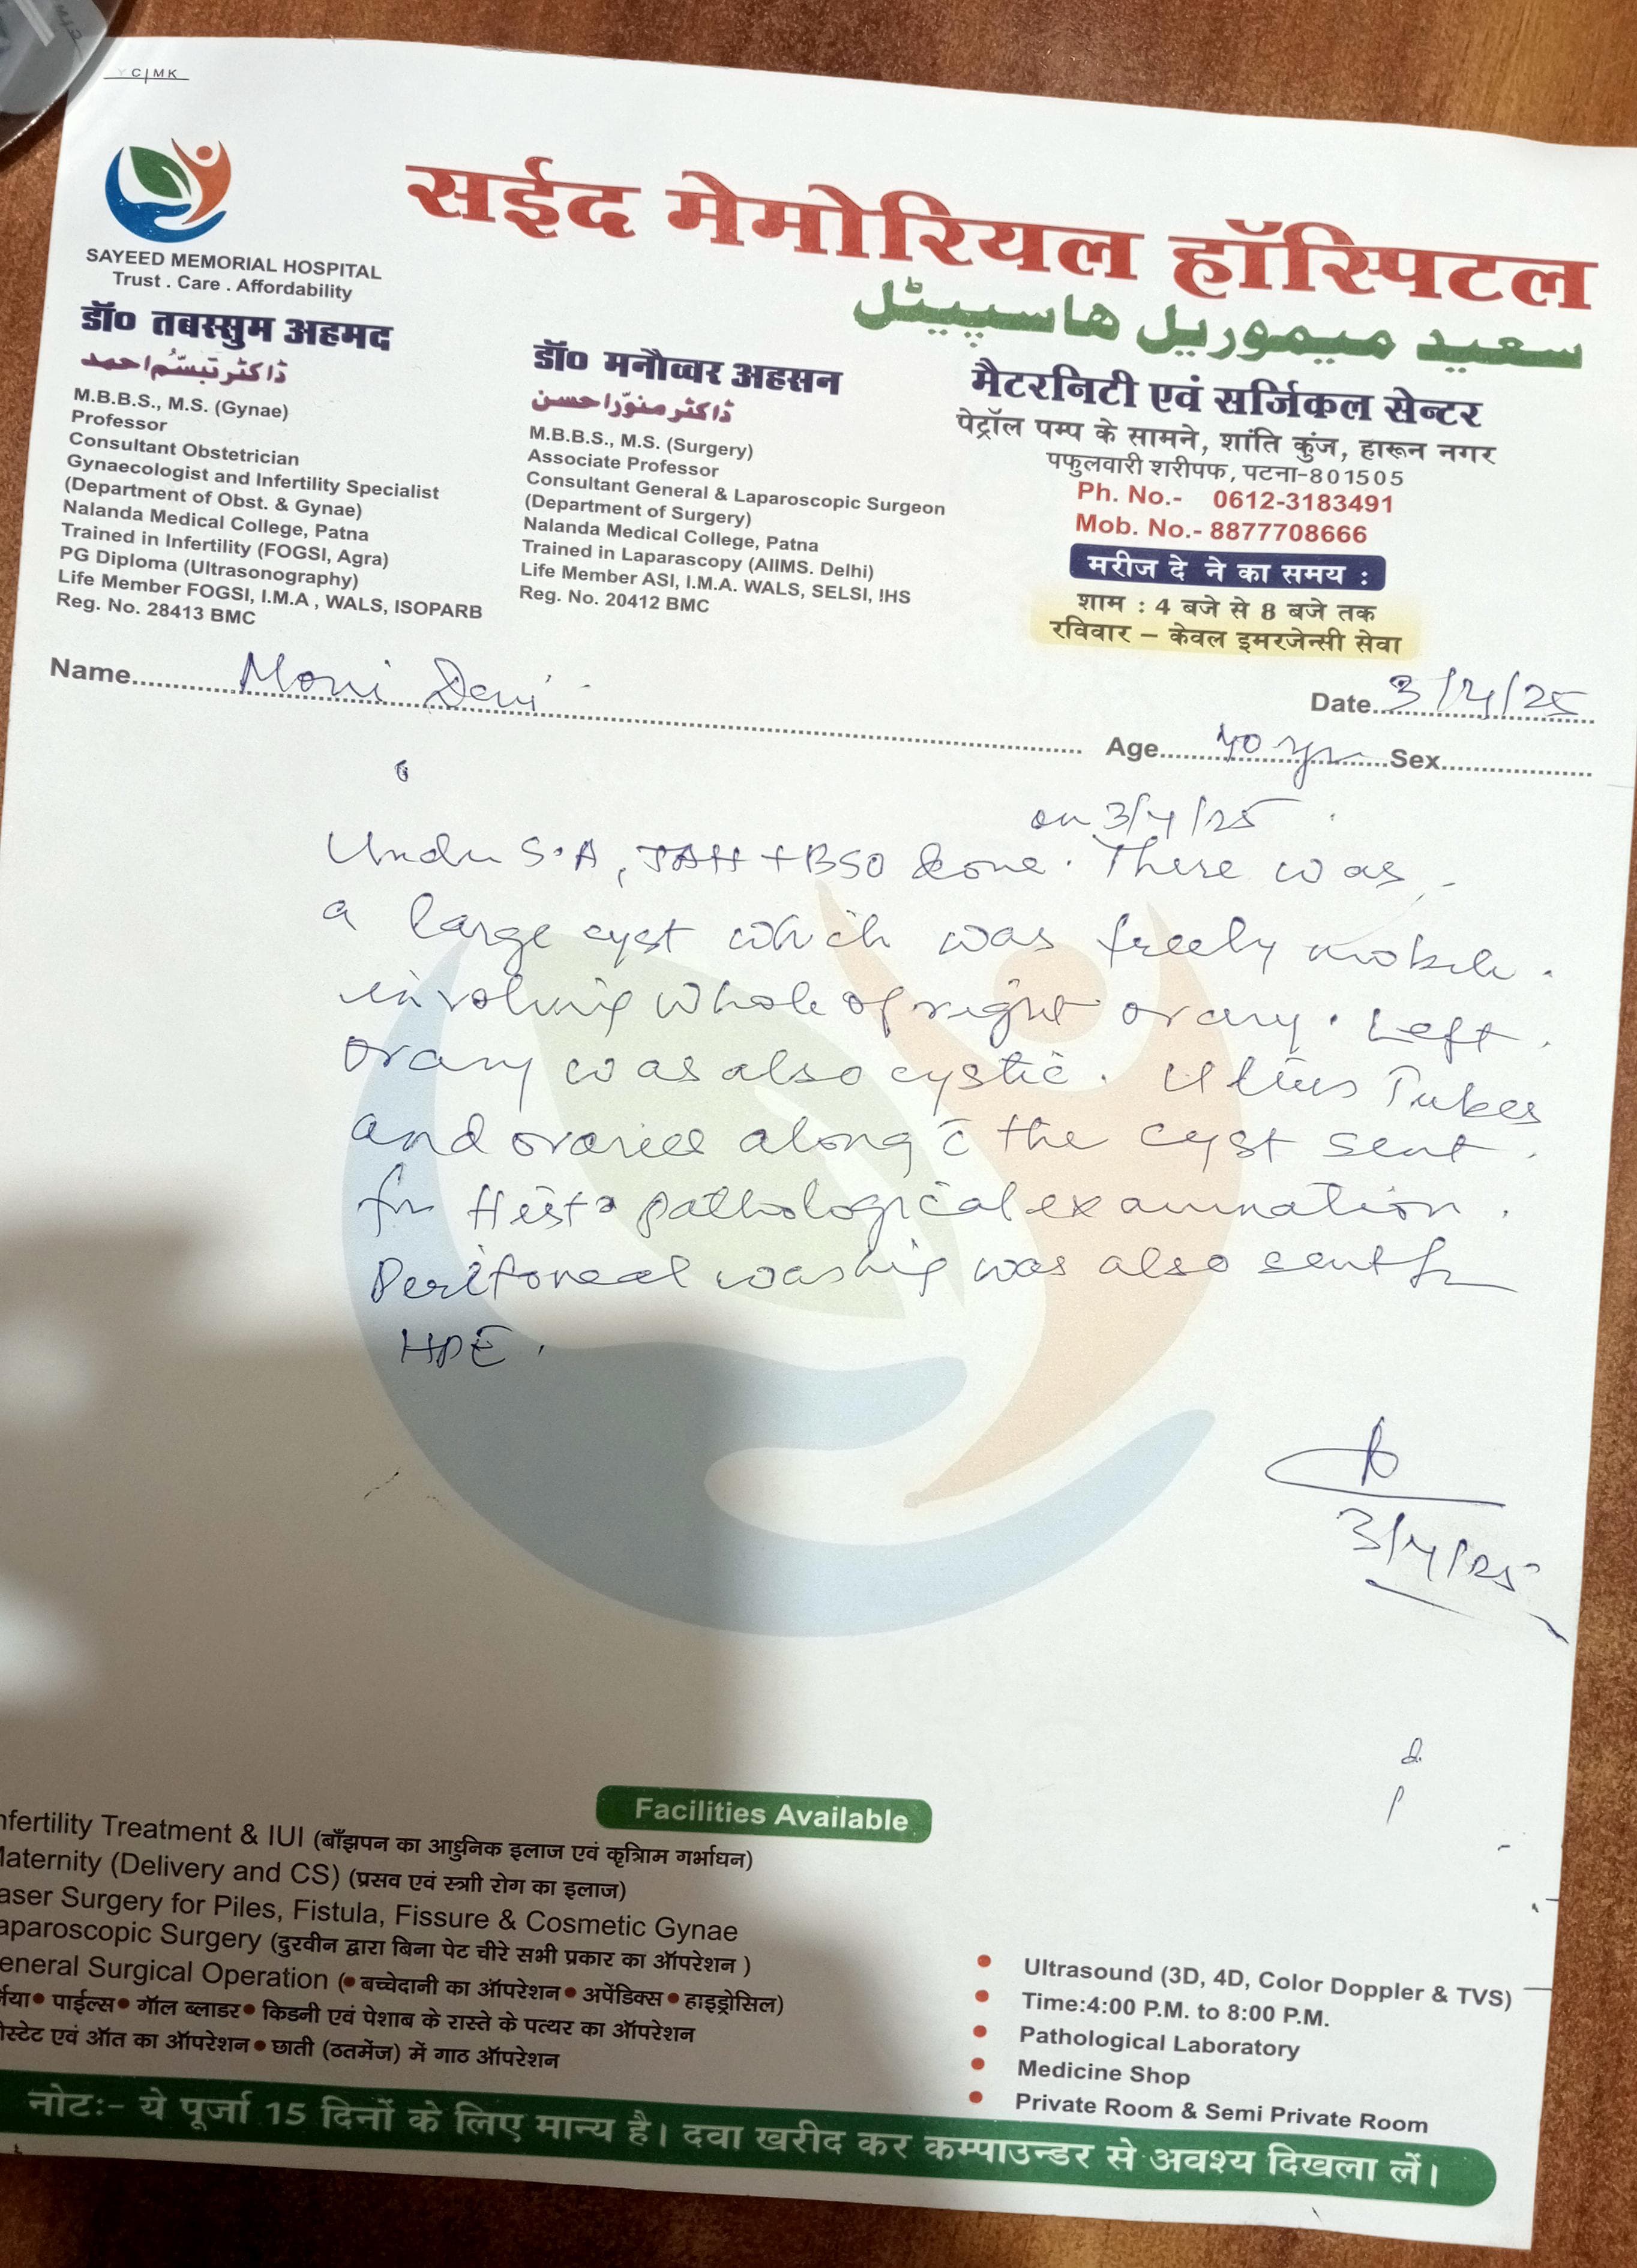 C MK
सईद मेमोरियल हॉस्पिटल
سعید میموریل ھاسپیٹل
SAYEED MEMORIAL HOSPITAL
Trust . Care . Affordability
डॉ० तबस्सुम अहमद
ڈاکٹر تبسّم احمد
M.B.B.S., M.S. (Gynae)
Professor
Consultant Obstetrician
Gynaecologist and Infertility Specialist
(Department of Obst. & Gynae)
Nalanda Medical College, Patna
Trained in Infertility (FOGSI, Agra)
PG Diploma (Ultrasonography)
Life Member FOGSI, I.M.A , WALS, ISOPARB
Reg. No. 28413 BMC
डॉ० मनौव्वर अहसन
ڈاکٹر منوّر احسن
M.B.B.S., M.S. (Surgery)
Associate Professor
Consultant General & Laparoscopic Surgeon
(Department of Surgery)
Nalanda Medical College, Patna
Trained in Laparascopy (AIIMS. Delhi)
Life Member ASI, I.M.A. WALS, SELSI, IHS
Reg. No. 20412 BMC
मैटरनिटी एवं सर्जिकल सेन्टर
पेट्रॉल पम्प के सामने, शांति कुंज, हारून नगर
पफुलवारी शरीपफ, पटना-801505
Ph. No.- 0612-3183491
Mob. No.- 8877708666
मरीज दे ने का समय :
शाम : 4 बजे से 8 बजे तक
रविवार – केवल इमरजेन्सी सेवा
Name Moni Devi
Date 3/4/25
Age 40 yr Sex
on 3/4/25
Under S.A, TAH + BSO done. There was
a large cyst which was freely mobile.
involving whole of right ovary. Left
ovary was also cystic. Uterus Tubes
and ovaries along c̄ the cyst sent
for Histo pathological examination.
Peritoneal washing was also sent for
HPE.
3/4/25
Facilities Available
nfertility Treatment & IUI (बाँझपन का आधुनिक इलाज एवं कृत्रिाम गर्भाधन)
aternity (Delivery and CS) (प्रसव एवं स्त्राी रोग का इलाज)
aser Surgery for Piles, Fistula, Fissure & Cosmetic Gynae
aparoscopic Surgery (दुरवीन द्वारा बिना पेट चीरे सभी प्रकार का ऑपरेशन )
eneral Surgical Operation (• बच्चेदानी का ऑपरेशन • अपेंडिक्स • हाइड्रोसिल)
र्निया • पाईल्स • गॉल ब्लाडर • किडनी एवं पेशाब के रास्ते के पत्थर का ऑपरेशन
ोस्टेट एवं ऑत का ऑपरेशन • छाती (ठतमेंज) में गाठ ऑपरेशन
• Ultrasound (3D, 4D, Color Doppler & TVS)
• Time:4:00 P.M. to 8:00 P.M.
• Pathological Laboratory
• Medicine Shop
• Private Room & Semi Private Room
नोटः- ये पूर्जा 15 दिनों के लिए मान्य है। दवा खरीद कर कम्पाउन्डर से अवश्य दिखला लें।